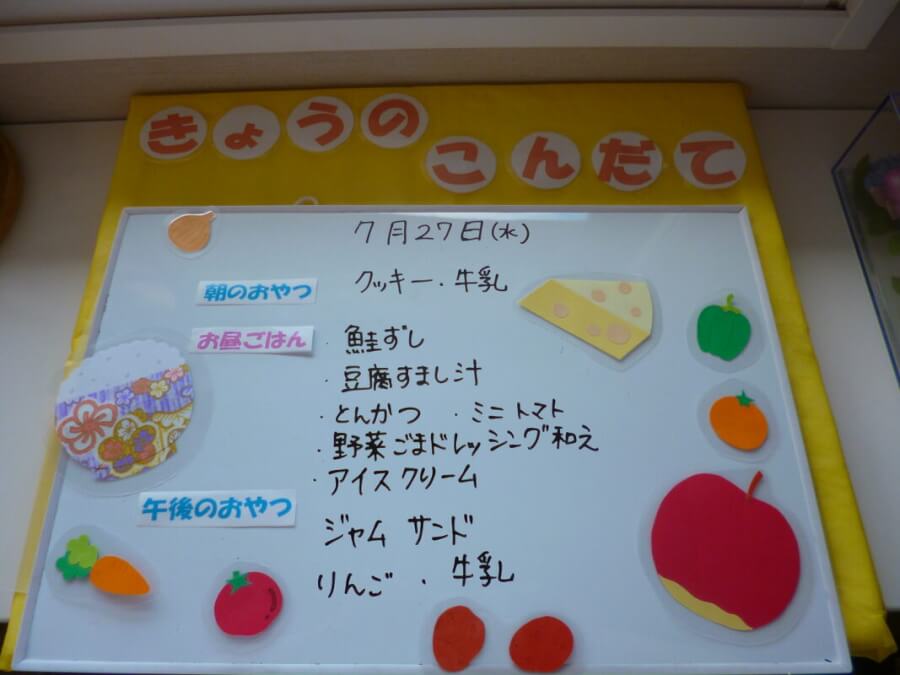 きょうの
こんだて
7月27日(水)
朝のおやつ クッキー・牛乳
お昼ごはん ・鮭ずし
・豆腐すまし汁
・とんかつ ・ミニトマト
・野菜ごまドレッシング和え
・アイスクリーム
午後のおやつ
ジャム サンド
りんご ・ 牛乳